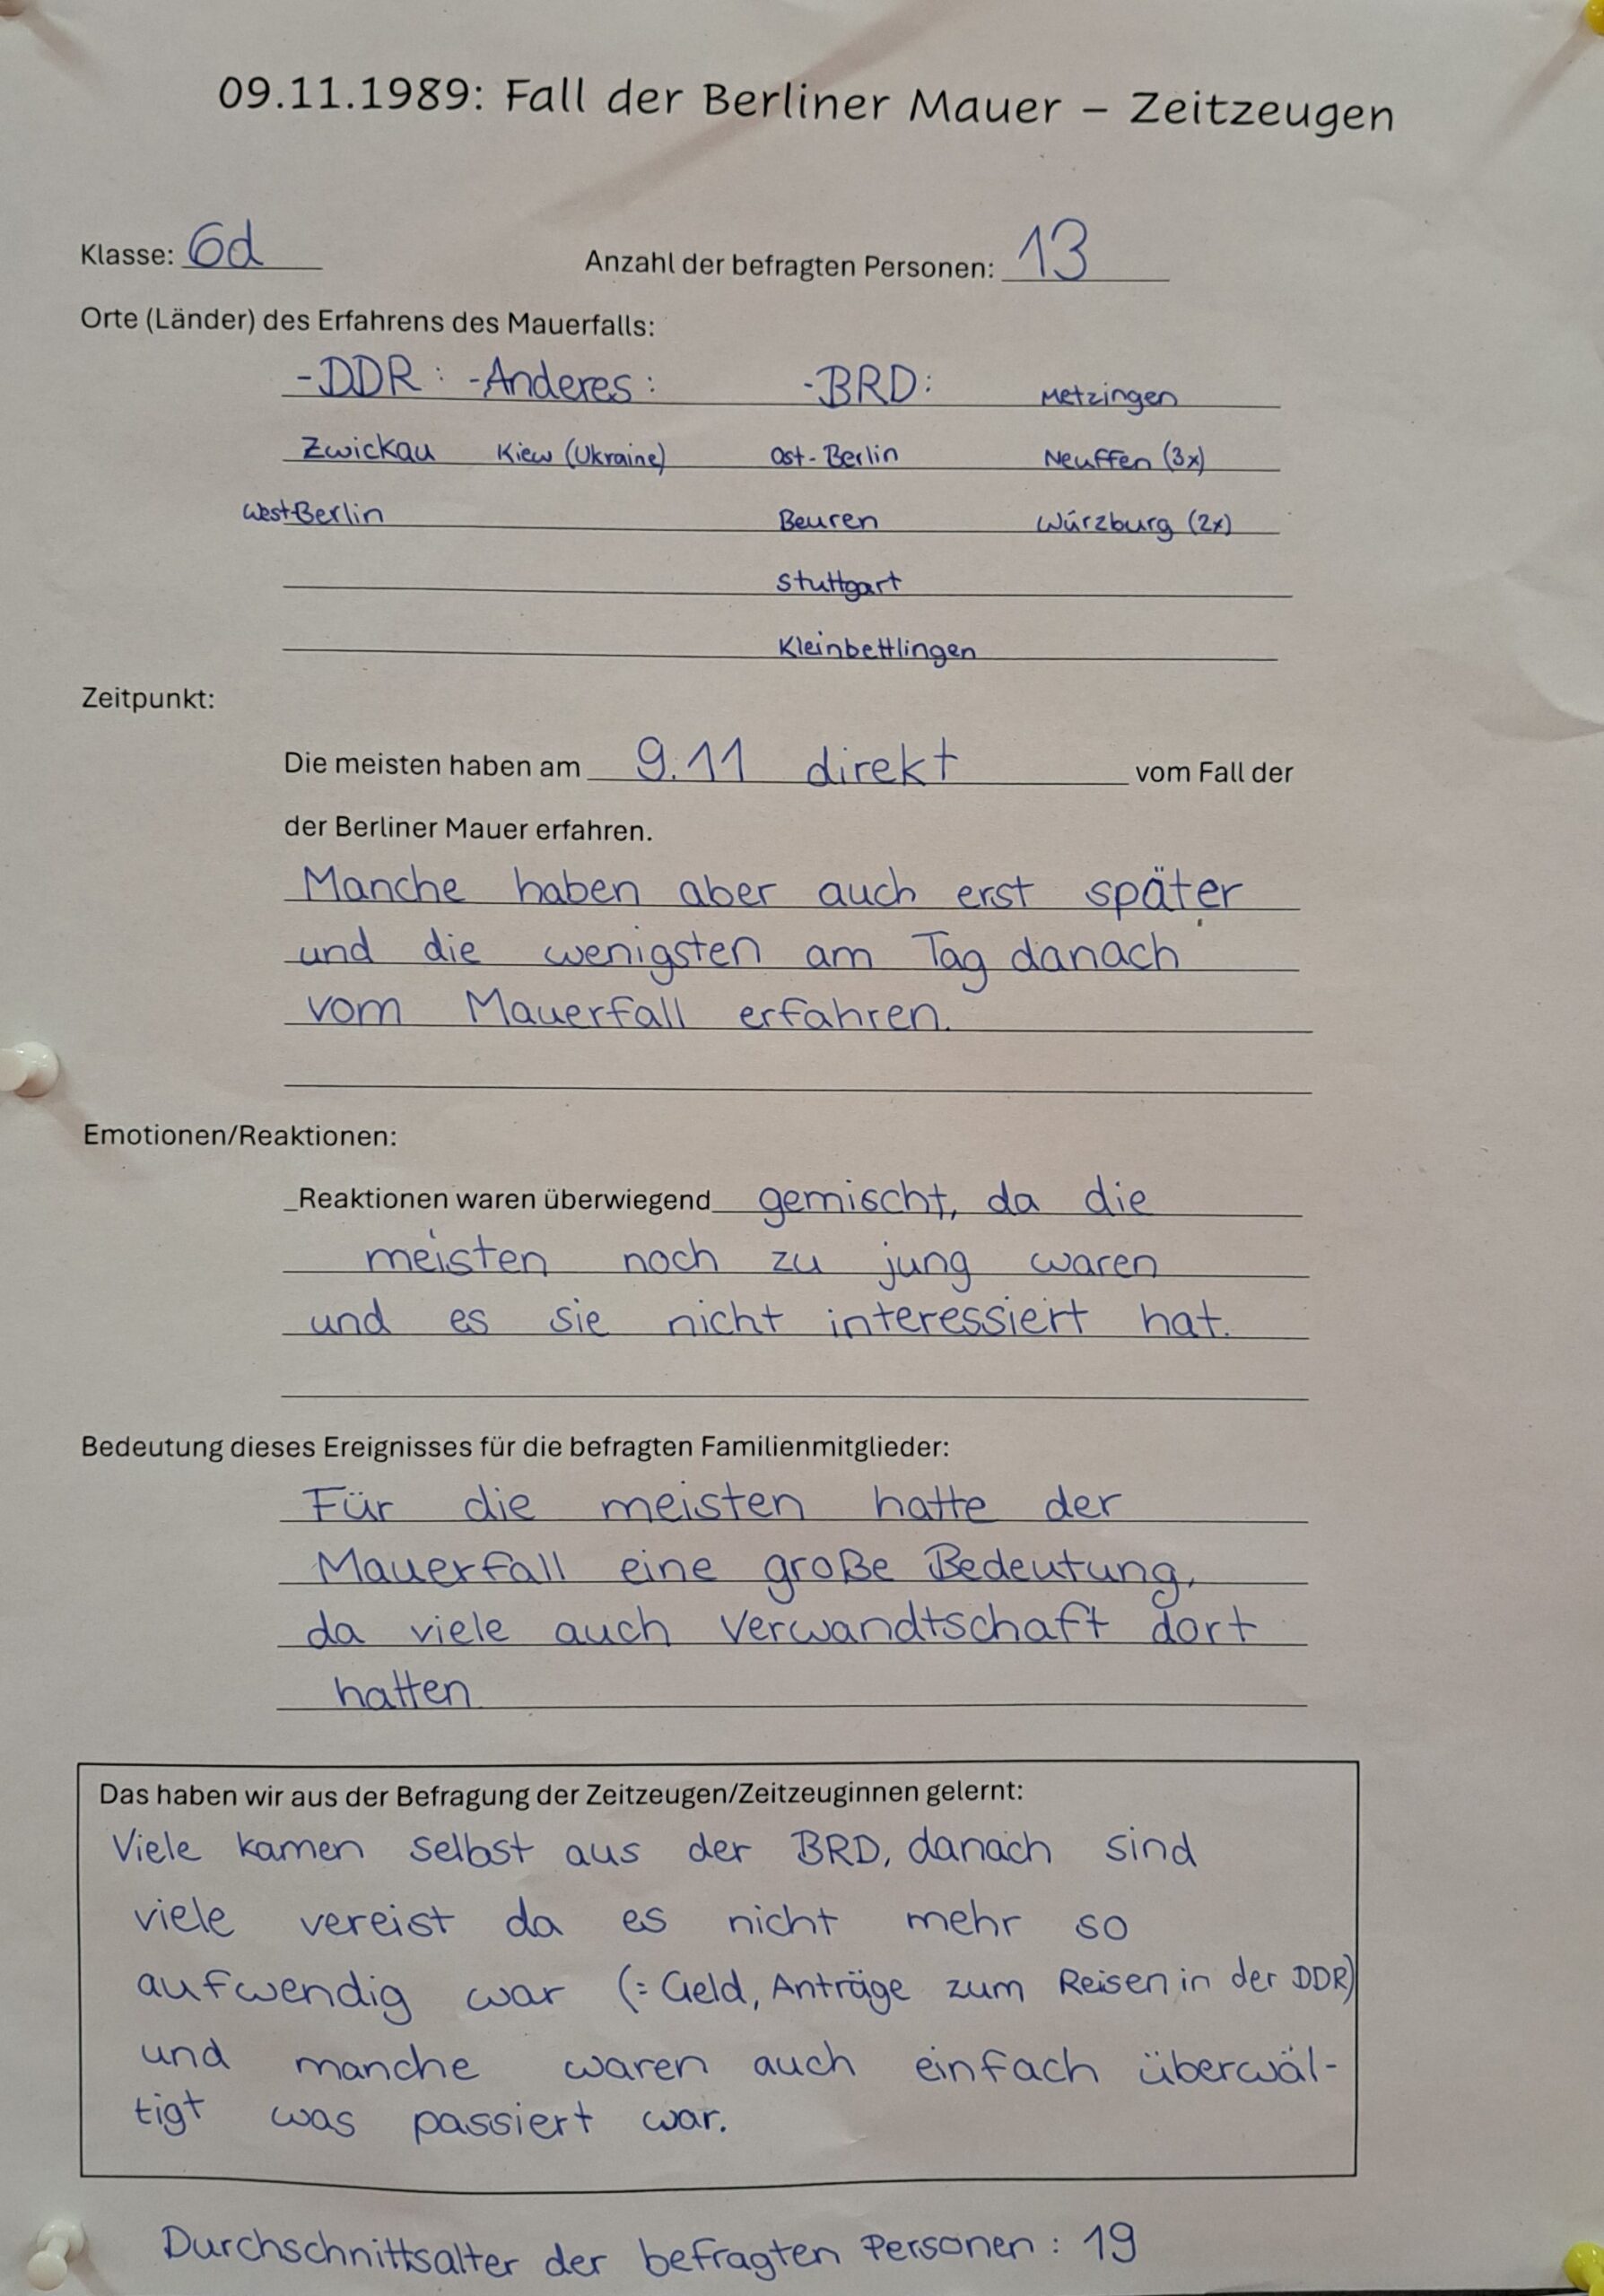 09.11.1989: Fall der Berliner Mauer – Zeitzeugen
Klasse: 6d Anzahl der befragten Personen: 13
Orte (Länder) des Erfahrens des Mauerfalls:
-DDR: -Anderes: -BRD: Metzingen
Zwickau Kiew (Ukraine) Ost-Berlin Neuffen (3x)
WestBerlin Beuren Würzburg (2x)
Stuttgart
Kleinbettlingen
Zeitpunkt:
Die meisten haben am 9.11 direkt vom Fall der
der Berliner Mauer erfahren.
Manche haben aber auch erst später
und die wenigsten am Tag danach
vom Mauerfall erfahren.
Emotionen/Reaktionen:
_Reaktionen waren überwiegend gemischt, da die
meisten noch zu jung waren
und es sie nicht interessiert hat.
Bedeutung dieses Ereignisses für die befragten Familienmitglieder:
Für die meisten hatte der
Mauerfall eine große Bedeutung,
da viele auch Verwandtschaft dort
hatten
Das haben wir aus der Befragung der Zeitzeugen/Zeitzeuginnen gelernt:
Viele kamen selbst aus der BRD, danach sind
viele vereist da es nicht mehr so
aufwendig war (: Geld, Anträge zum Reisen in der DDR)
und manche waren auch einfach überwäl-
tigt was passiert war.
Durchschnittsalter der befragten Personen: 19